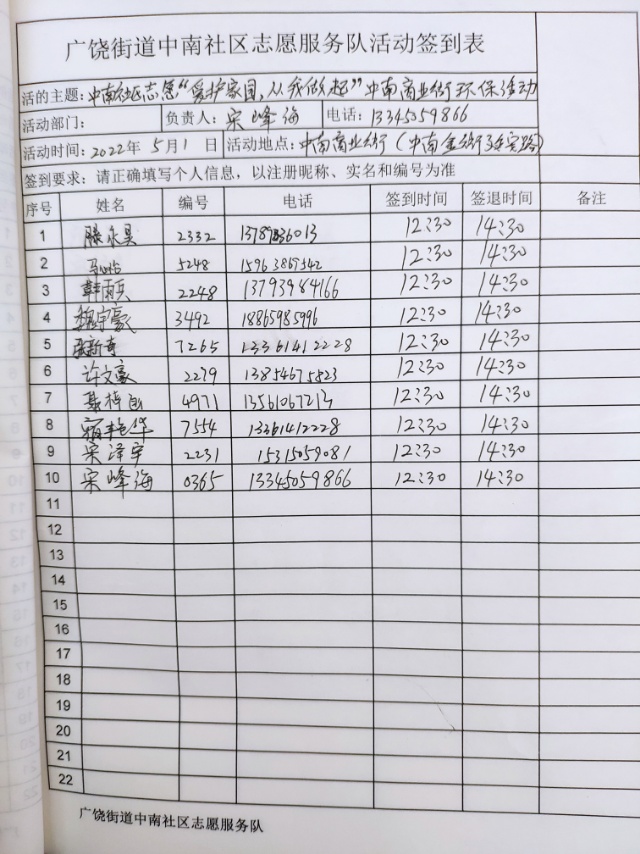 广饶街道中南社区志愿服务队活动签到表
活的主题：中南社区志愿“爱护家园，从我做起”中南商业街环保活动
活动部门： 负责人：宋峰海 电话：13345059866
活动时间：2022年5月1日 活动地点：中南商业街（中南金街
签到要求：请正确填写个人信息，以注册昵称、实名和编号为准
序号 姓名 编号 电话 签到时间 签退时间 备注
1 滕永昊 2332 12:30 14:30
2 5248 15963869542 12:30 14:30
3 韩雨 2248 13793984166 12:30 14:30
4 魏宇豪 3492 18865985996 12:30 14:30
5 7265 13361412228 12:30 14:30
6 许文豪 2279 13854675823 12:30 14:30
7 4971 13561067213 12:30 14:30
8 艳华 7554 13261412228 12:30 14:30
9 宋泽宇 2231 15315059081 12:30 14:30
10 宋峰海 0365 13345059866 12:30 14:30
11
12
13
14
15
16
17
18
19
20
21
22
广饶街道中南社区志愿服务队